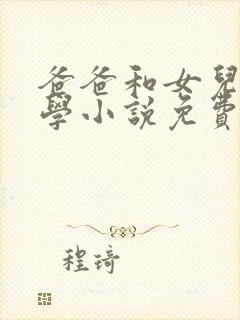 爸爸和女兒
學小說免費
程琦